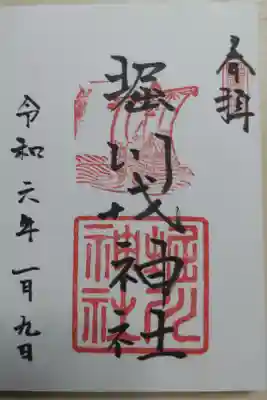 奉拝
堀川戎神社
令和六年一月九日
堀川戎
神社